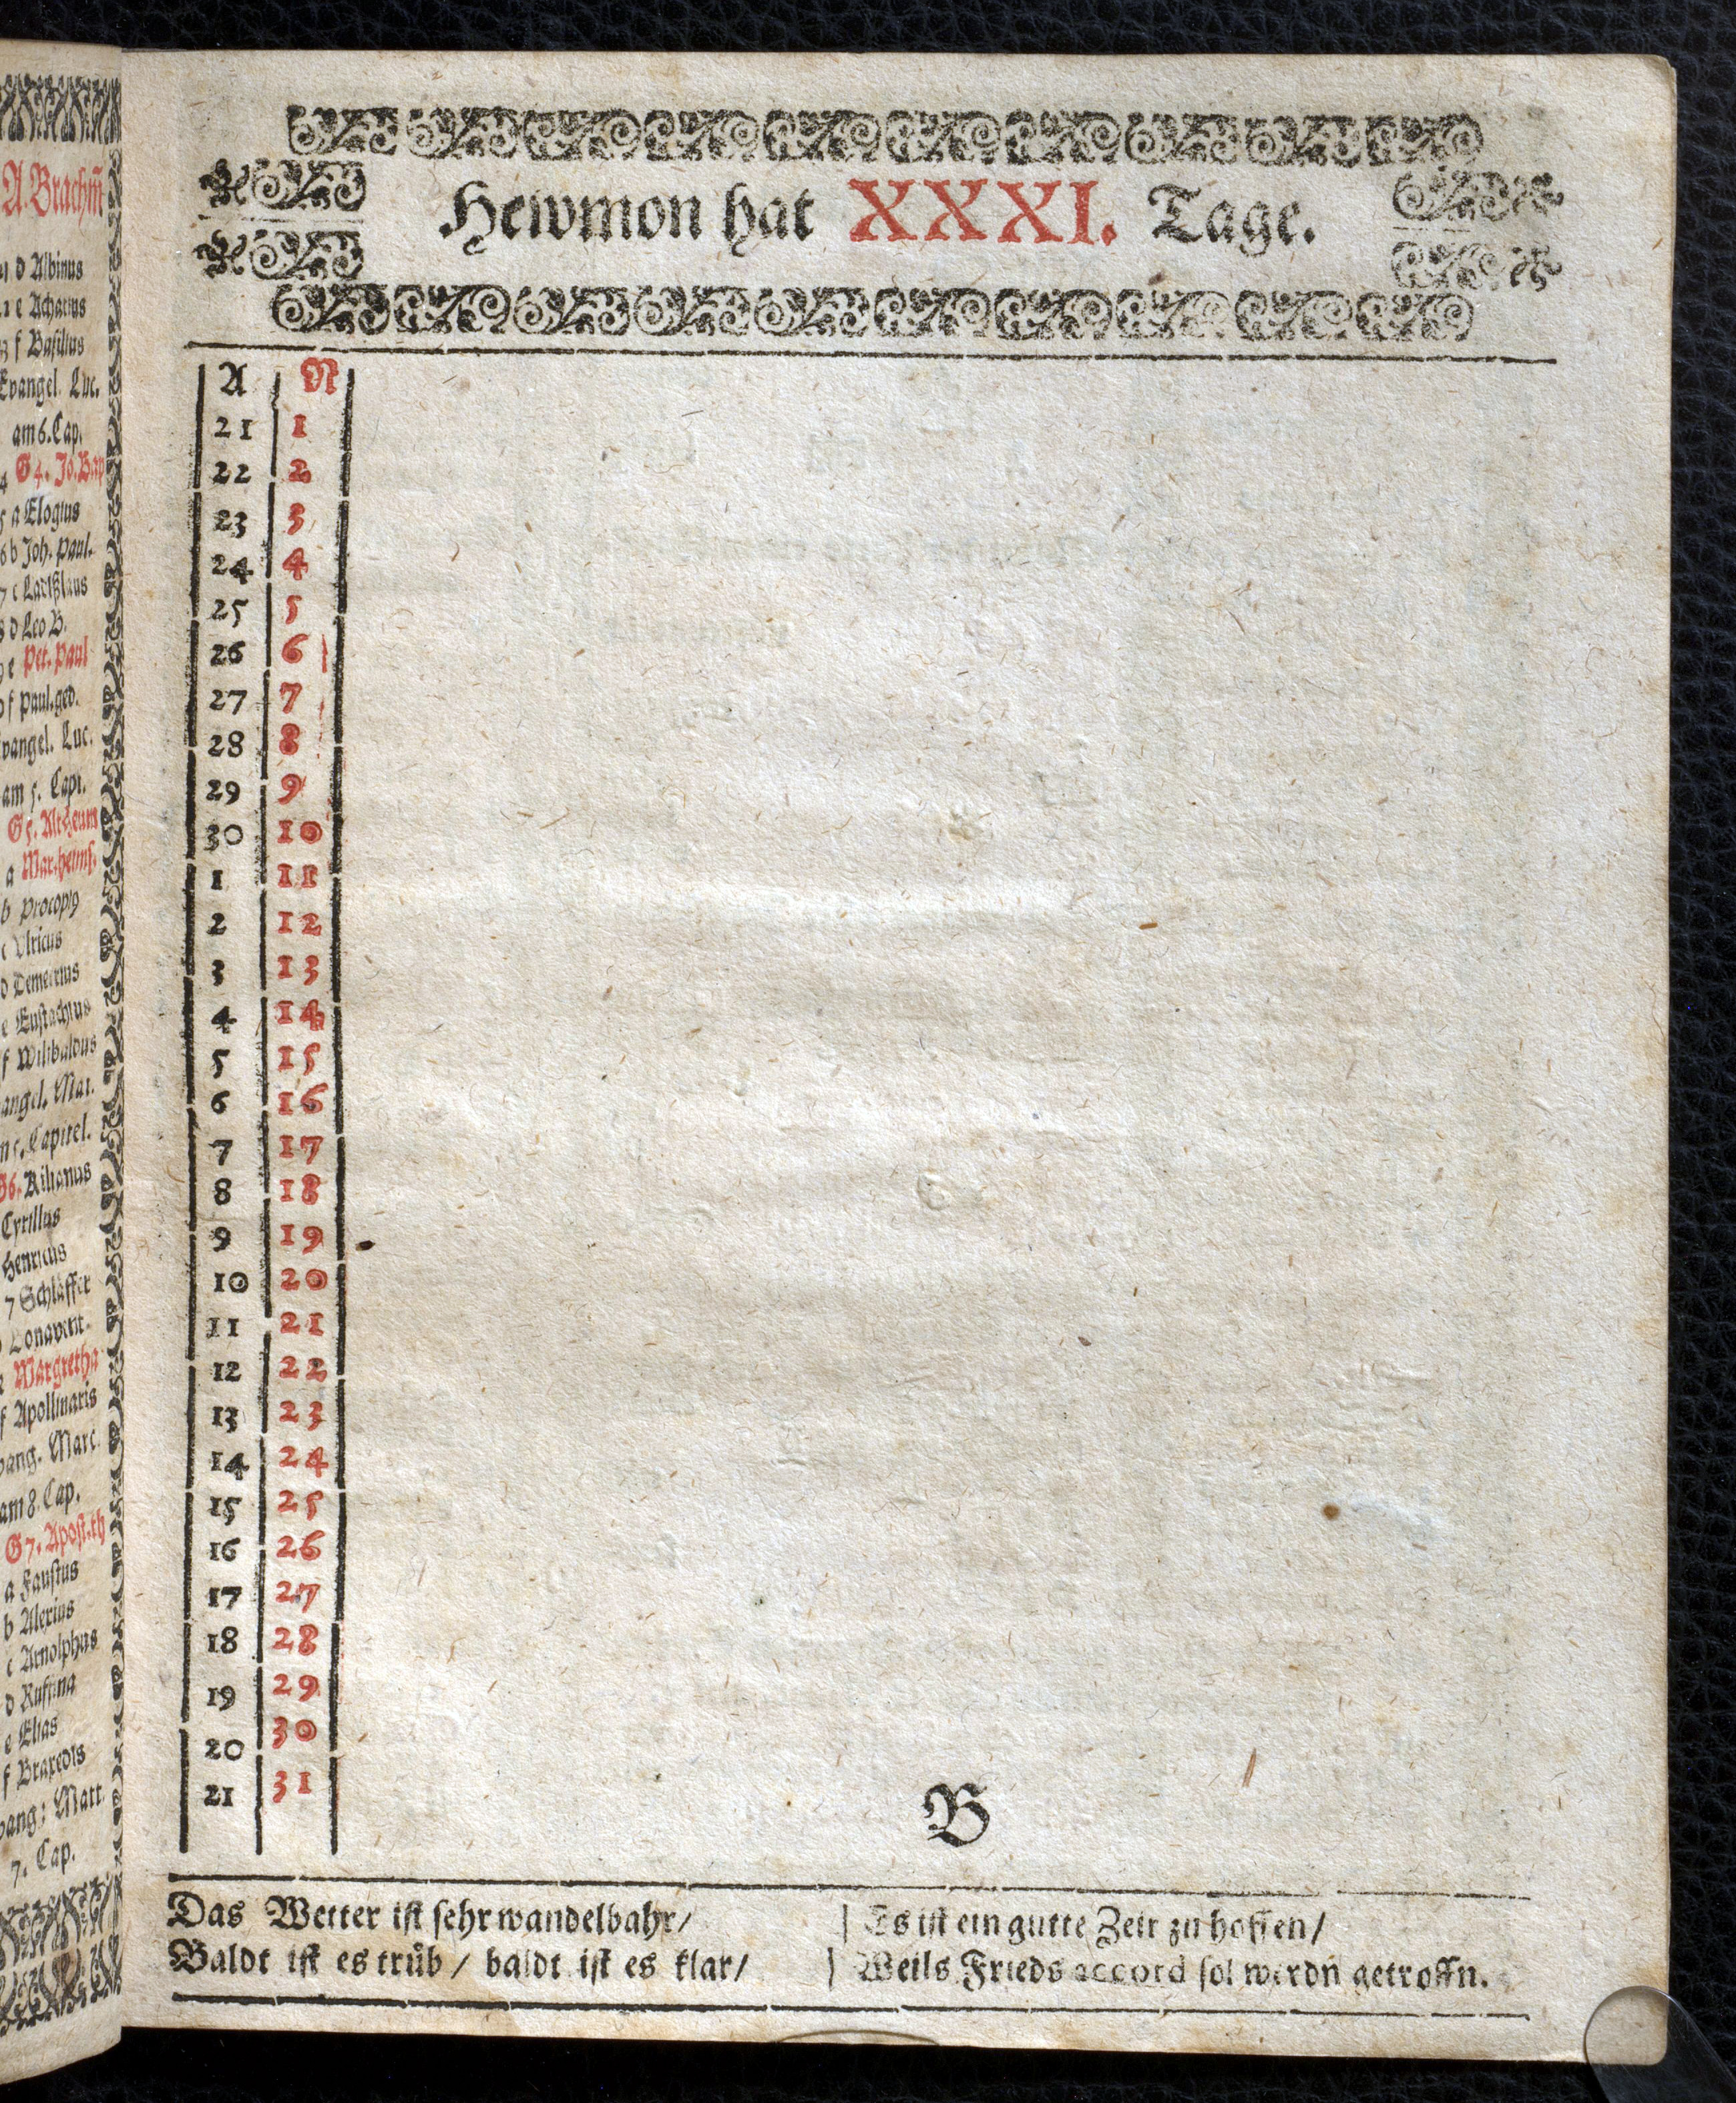 A Brachm̃
d Albinus
e Achatius
f Basilius
Evangel. Luc.
am 6. Cap.
G 4. Jo. Bap
a Elogius
6 b Joh. Paul.
7 c Ladißlaus
8 d Leo B.
9 e Pet. Paul
f Paul. ged.
vangel. Luc.
am 5. Capi.
G 5. Alt
a Mar. heims.
b Procopi9
c Vlricus
d Demetrius
e Eustachius
f Wilibaldus
angel. Mat.
5. Capitel.
G6. Kilianus
Cyrillus
Henricus
7 Schläffer
Bonavent.
Margretha
f Apollinaris
vang. Marc.
am 8. Cap.
G 7. Apost. th
a Faustus
b Alexius
c Arnolphus
d Ruffina
e Elias
f Braxedis
vang: Matt.
7. Cap.
Hewmon hat XXXI. Tage.
A N
21 1
22 2
23 3
24 4
25 5
26 6
27 7
28 8
29 9
30 10
1 11
2 12
3 13
4 14
5 15
6 16
7 17
8 18
9 19
10 20
11 21
12 22
13 23
14 24
15 25
16 26
17 27
18 28
19 29
20 30
21 31
B
Das Wetter ist sehr wandelbahr/
Baldt ist es trüb / baldt ist es klar/
Es ist ein gutte Zeit zu hoffen/
Weils Frieds accord sol werdn getroffn.